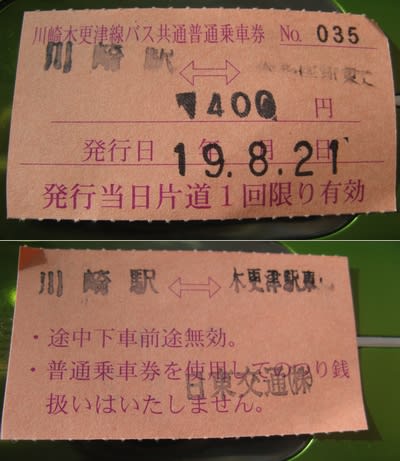 川崎木更津線バス共通普通乗車券 No. 035
川崎駅 ⇔
1400 円
発行日 19.年8.月21日
発行当日片道1回限り有効
川崎駅 ⇔ 木更津駅東
・途中下車前途無効。
・普通乗車券を使用してのつり銭
扱いはいたしません。
日東交通㈱